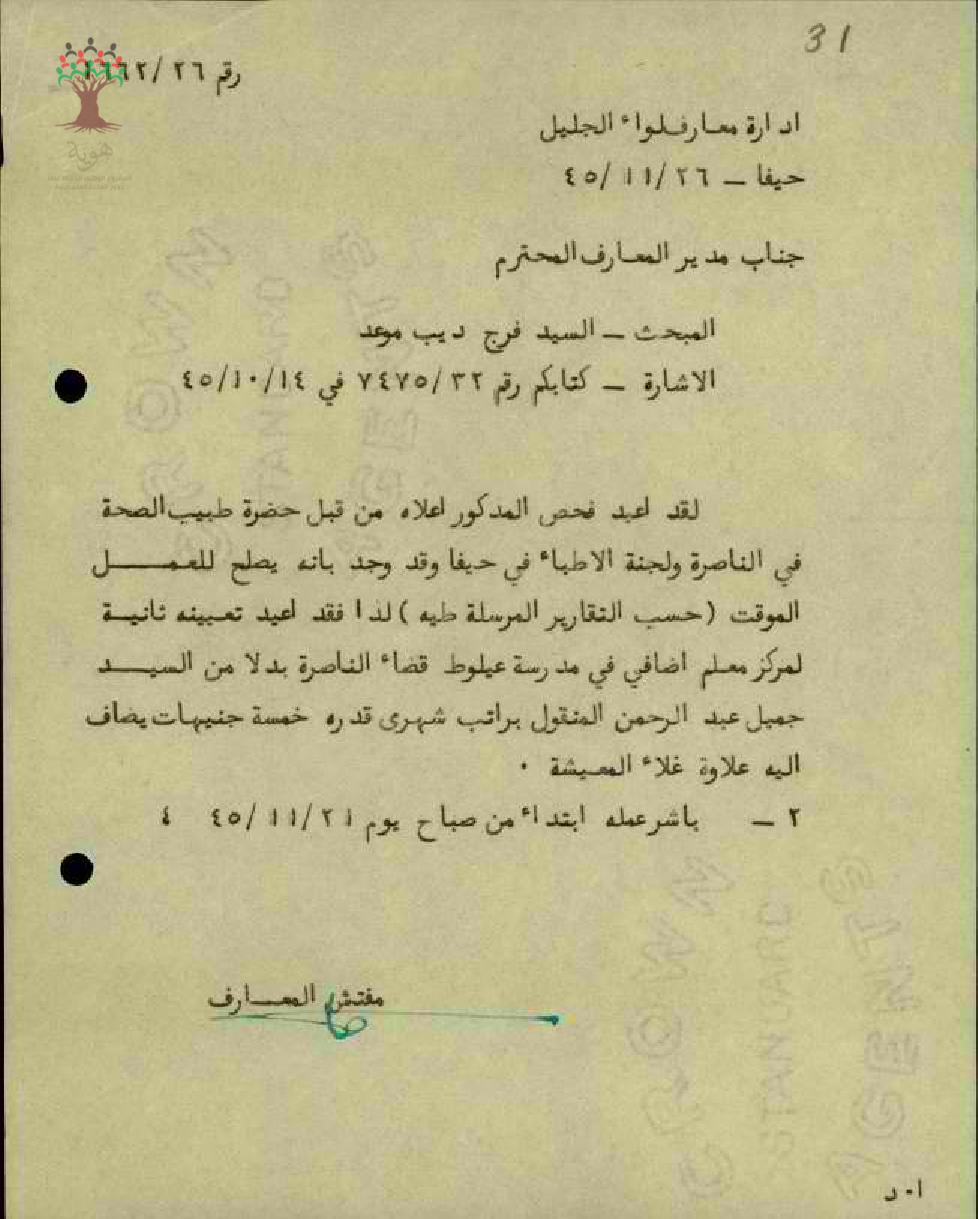 31
رقم ٢٦/١٦٦٢
هوية
ادارة معارف لواء الجليل
حيفا – ٢٦/١١/٤٥
جناب مدير المعارف المحترم
المبحث – السيد فرج ديب موعد
الاشارة – كتابكم رقم ٧٤٧٥/٣٢ في ٤٥/١٠/١٤
لقد اعيد فحص المدكور اعلاه من قبل حضرة طبيب الصحة
في الناصرة ولجنة الاطباء في حيفا وقد وجد بانه يصلح للعمـــــل
الموقت (حسب التقارير المرسلة طيه) لذا فقد اعيد تعيينه ثانيــة
لمركز معلم اضافي في مدرسة عيلوط قضاء الناصرة بدلا من السيـــد
جميل عبد الرحمن المنقول براتب شهرى قدره خمسة جنيهات يضاف
اليه علاوة غلاء المعيشة ٠
٢ – باشر عمله ابتداء من صباح يوم ٤٥/١١/٢١ ٤
مفتش المعــارف
ا٠د
CROWN
STANDARD